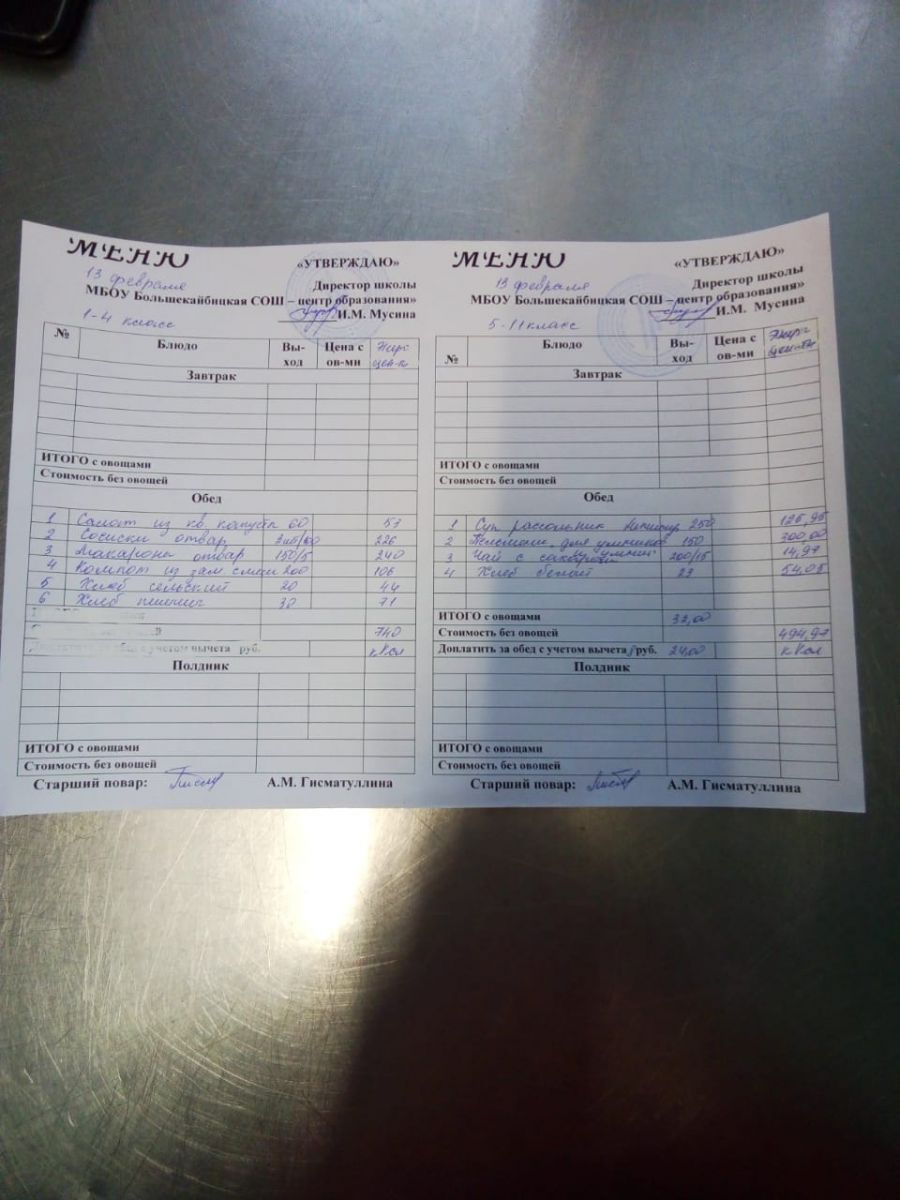 МЕНЮ
«УТВЕРЖДАЮ»
13 февраля
Директор школы
МБОУ Большекайбицкая СОШ – центр образования»
И.М. Мусина
1-4 класс
№ Блюдо Вы-ход Цена с ов-ми Энерг цен-ть
Завтрак
ИТОГО с овощами
Стоимость без овощей
Обед
1 Салат из кв. капусты 60 53
2 Сосиски отвар 226
3 Макароны отвар 150/5 240
4 Компот из зам. смеси 200 106
5 Хлеб сельский 20 44
6 Хлеб пшенич 30 71
740
Доплатить за обед с учетом вычета руб. кКал
Полдник
ИТОГО с овощами
Стоимость без овощей
Старший повар: А.М. Гисматуллина
МЕНЮ
«УТВЕРЖДАЮ»
13 февраля
Директор школы
МБОУ Большекайбицкая СОШ – центр образования»
И.М. Мусина
5-11 класс
№ Блюдо Вы-ход Цена с ов-ми Энерг цен-ть
Завтрак
ИТОГО с овощами
Стоимость без овощей
Обед
1 Суп рассольник 250 125,95
2 150 300,00
3 Чай с сахаром 200/15 14,97
4 Хлеб белый 23 54,05
ИТОГО с овощами 32,00
Стоимость без овощей 494,97
Доплатить за обед с учетом вычета руб. 24,00 кКал
Полдник
ИТОГО с овощами
Стоимость без овощей
Старший повар: А.М. Гисматуллина